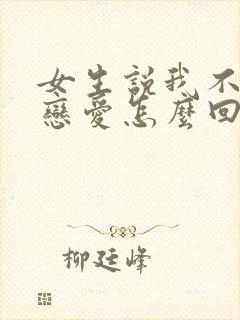 女生説我不
戀愛怎麼回
柳廷峰